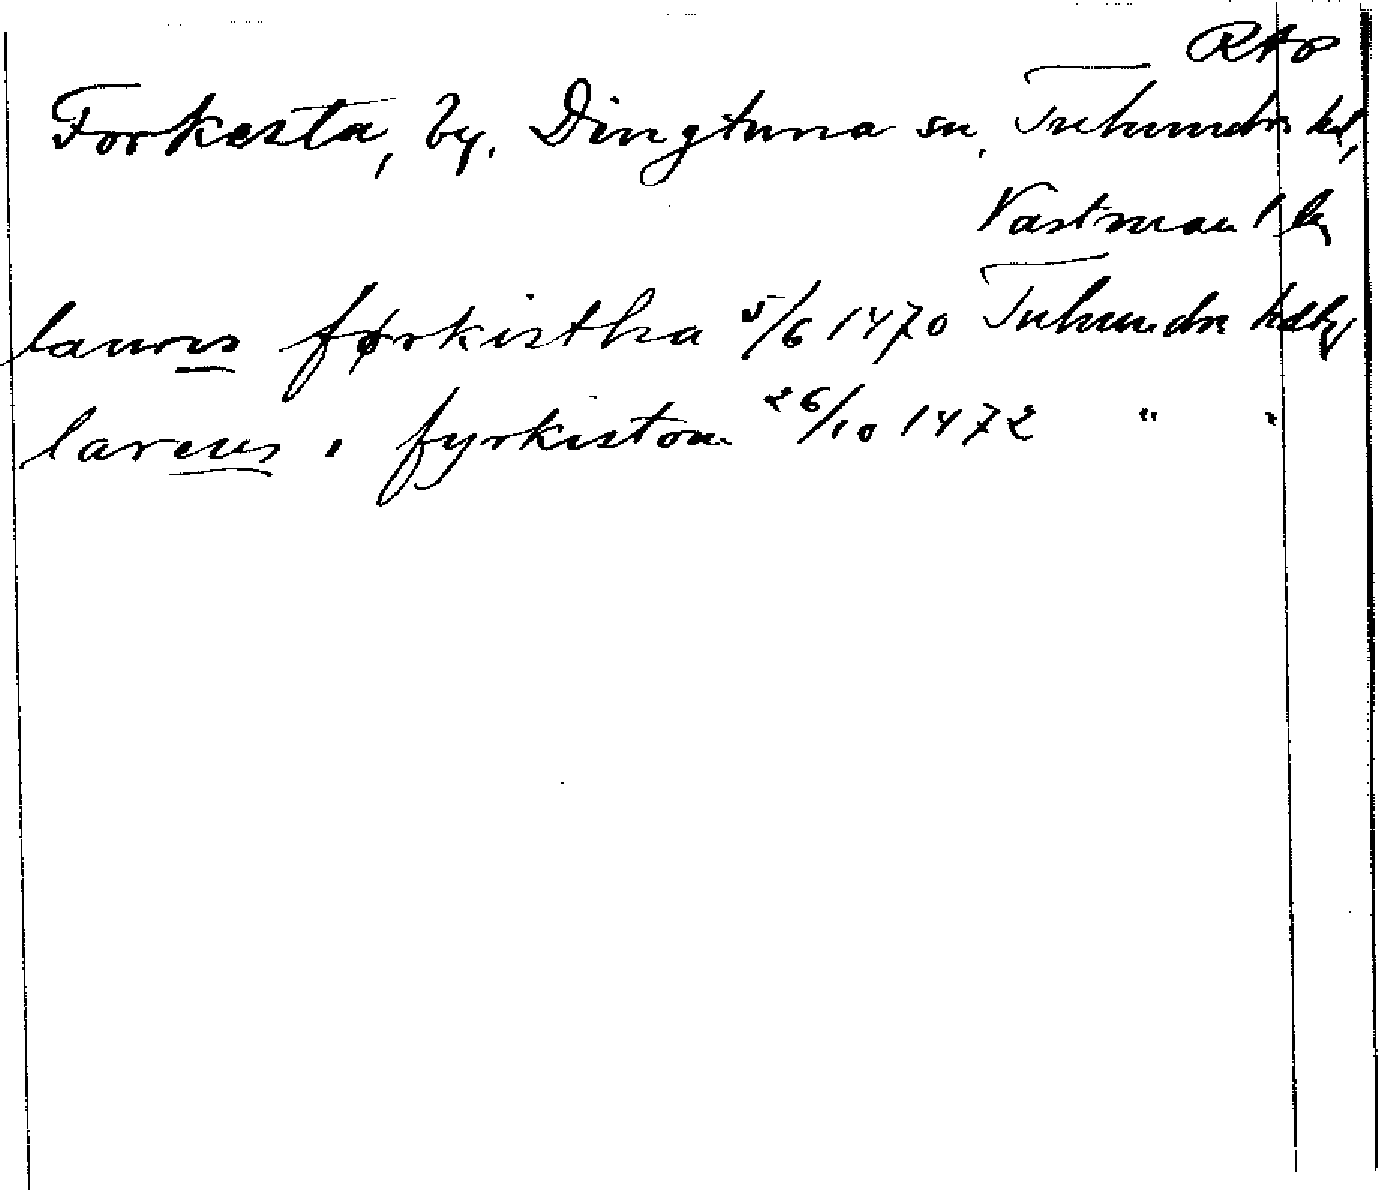 RAp
Forkesta, by, Dingtuna sn, Tuhundra hd,
Västmanl. l.
laurens førkistha 5/6 1470 Tuhundra hdbr
larens i fyrkistom 26/10 1472 " "